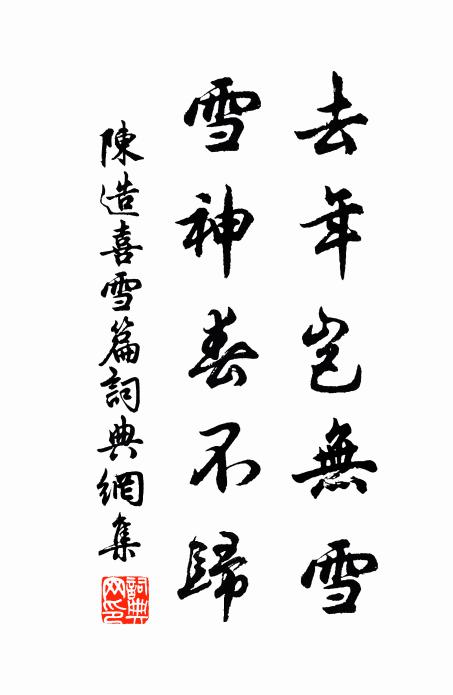 去年豈無雪
雪神春不歸
陳造喜雪篇詞典網集
詞典網印